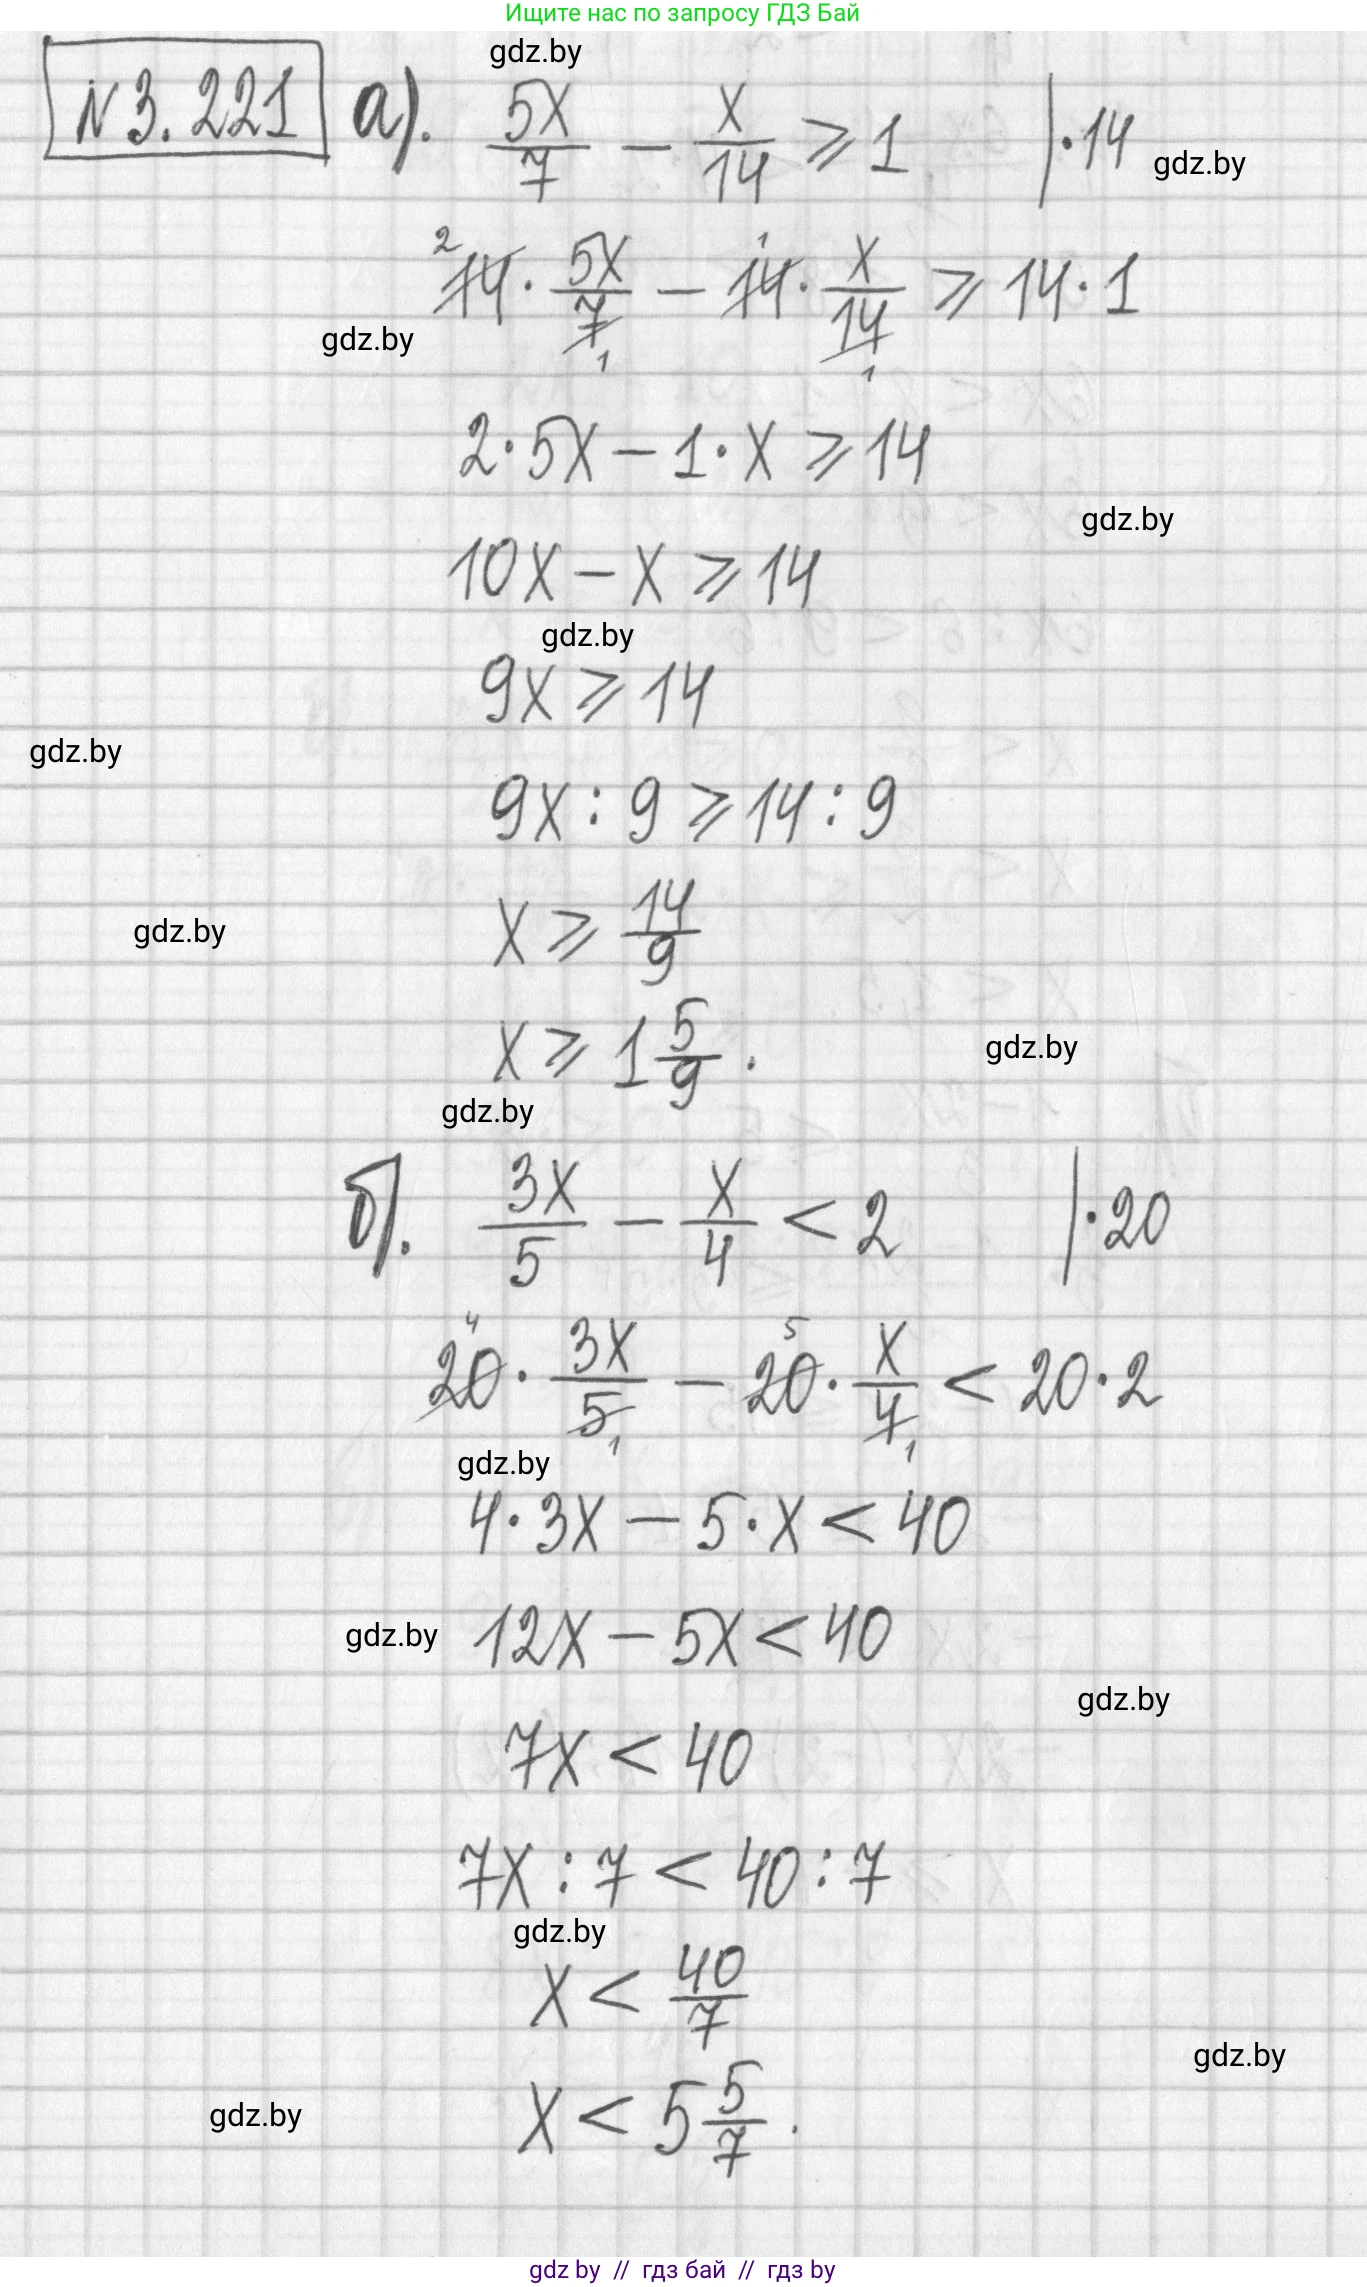 Ищите нас по запросу ГДЗ Бай
gdz.by
N 3. 221 а). 5x/7 − x/14 ⩾ 1 | · 14
gdz.by
²14 · 5x/7₁ − ¹14 · x/14₁ ⩾ 14 · 1
gdz.by
2 · 5x − 1 · x ⩾ 14
gdz.by
10x − x ⩾ 14
gdz.by
9x ⩾ 14
gdz.by
9x : 9 ⩾ 14 : 9
gdz.by
x ⩾ 14/9
gdz.by
x ⩾ 1 5/9 .
gdz.by
б). 3x/5 − x/4 < 2 | · 20
20⁴ · 3x/5₁ − 20⁵ · x/4₁ < 20 · 2
gdz.by
4 · 3x − 5 · x < 40
gdz.by 12x − 5x < 40
gdz.by
7x < 40
7x : 7 < 40 : 7
gdz.by
x < 40/7
gdz.by
x < 5 5/7 .
gdz.by
gdz by // гдз бай // гдз by